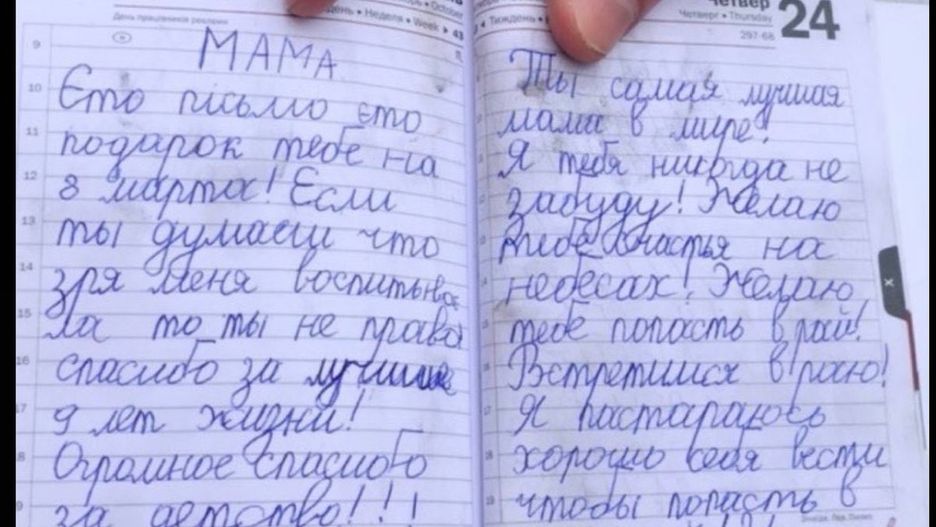 День працівників реклами
день • Неделя • Week • 43
МАМА
9
Єто пісьмо єто
10
подарок тебе на
11
8 марта! Єсли
12
ты думаеш что
13
зря меня воспитыва
14
ла то ты не права
спасибо за лучшие
16
9 лет жизни!
17
Огромное спасибо
18
за детство!!!
Четвер
Четверг • Thursday
24
Тиждень •
297-68
Ты самая лучшая
мама в мире!
Я тебя никогда не
забуду! Желаю
тебе счастья на
небесах! Желаю
тебе попасть в рай!
Встретимся в раю!
Я пастараюсь
хорошо себя вести
чтобы попасть в